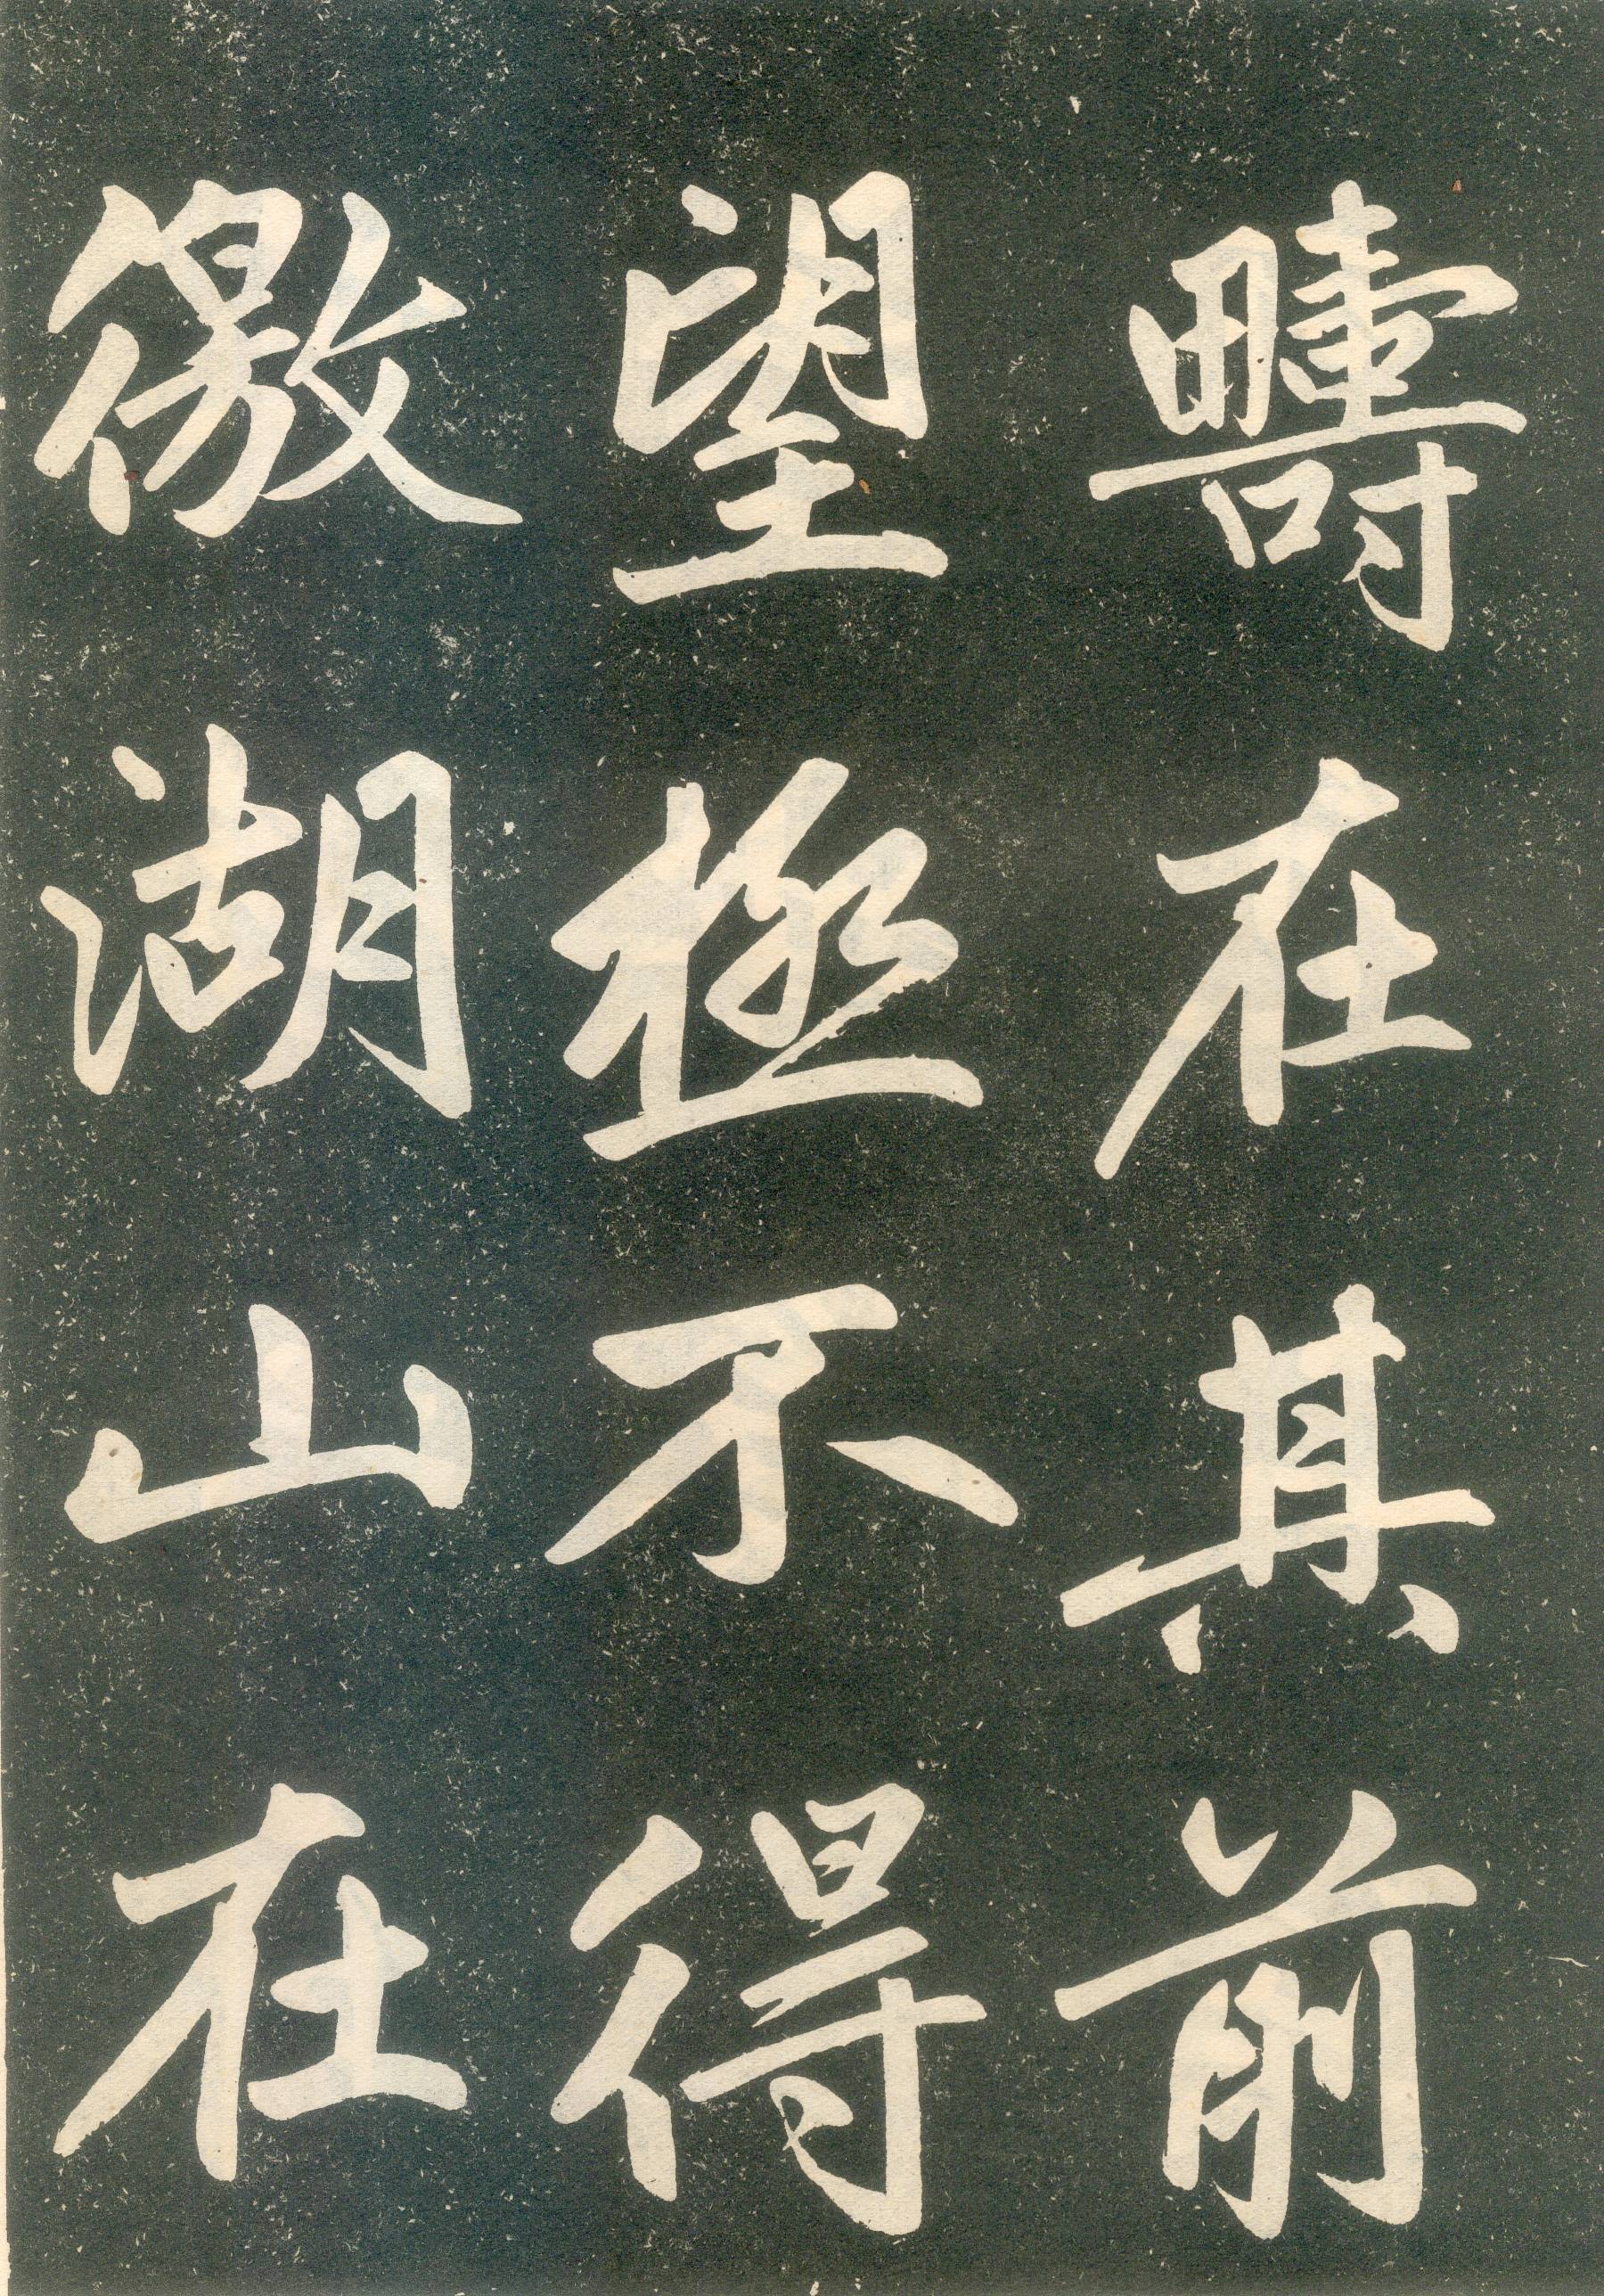 疇在其前
望極不得
徼湖山在